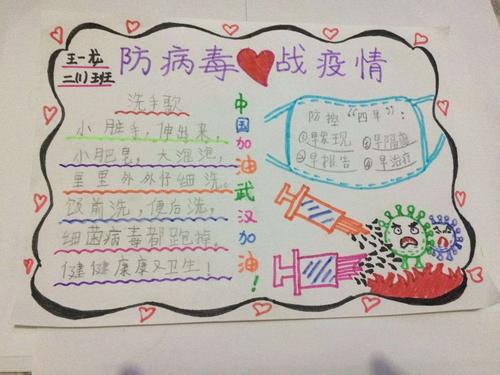 王一龙
二(1)班
防病毒战疫情
洗手歌
小脏手，伸出来，
小肥皂，大泡泡，
里里外外仔细洗。
饭前洗，便后洗，
细菌病毒都跑掉，
健健康康又卫生！
中国加油武汉加油！
防控“四早”：
①早发现 ②早隔离
③早报告 ④早治疗